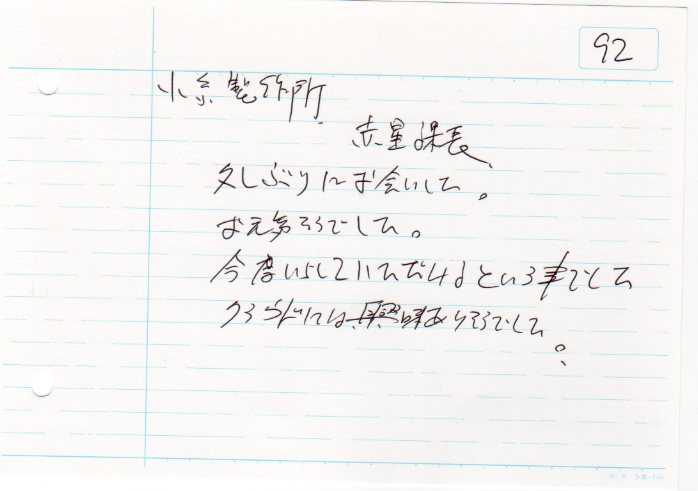 92
小糸製作所
赤星課長
久しぶりにお会いした。
お元気そうでした。
今度いらしていただけるという事でした
クラウドには興味ありそうでした。